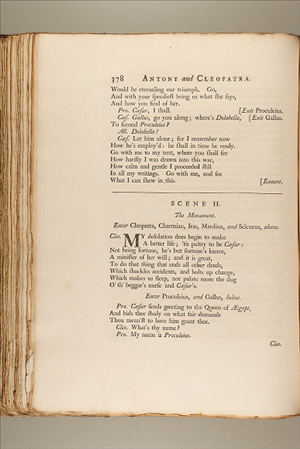 378 ANTONY and CLEOPATRA.
Would be eternaling our triumph. Go,
And with your speediest bring us what she says,
And how you find of her.
Pro. Cæsar, I shall. [Exit Proculeius.
Cæs. Gallus, go you along; where's Dolabella, [Exit Gallus.
To second Proculeius?
All. Dolabella!
Cæs. Let him alone; for I remember now
How he's employ'd: he shall in time be ready.
Go with me to my tent, where you shall see
How hardly I was drawn into this war,
How calm and gentle I proceeded still
In all my writings. Go with me, and see
What I can shew in this. [Exeunt.
SCENE II.
The Monument.
Enter Cleopatra, Charmian, Iras, Mardian, and Seleucus, above.
Cleo. MY desolation does begin to make
A better life; 'tis paltry to be Cæsar:
Not being fortune, he's but fortune's knave,
A minister of her will; and it is great,
To do that thing that ends all other deeds,
Which shackles accidents, and bolts up change,
Which makes us sleep, nor palate more the dug
O' th' beggar's nurse and Cæsar's.
Enter Proculeius, and Gallus, below.
Pro. Cæsar sends greeting to the Queen of Ægypt,
And bids thee study on what fair demands
Thou mean'st to have him grant thee.
Cleo. What's thy name?
Pro. My name is Proculeius.
Cleo.